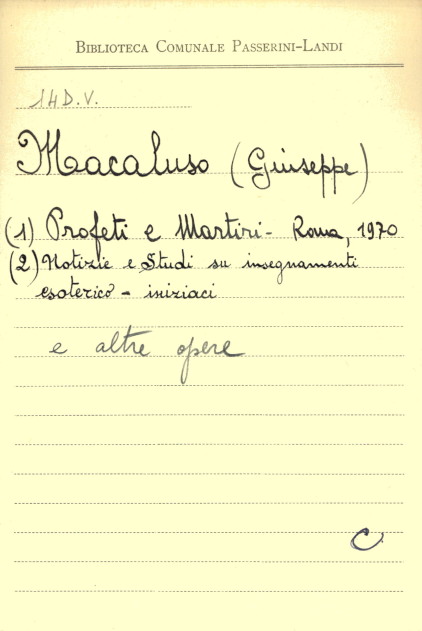 BIBLIOTECA COMUNALE PASSERINI-LANDI
14 D.V.
Macaluso (Giuseppe)
(1) Profeti e Martiri - Roma, 1970
(2) Notizie e Studi su insegnamenti
esoterico - iniziaci
e altre opere
C